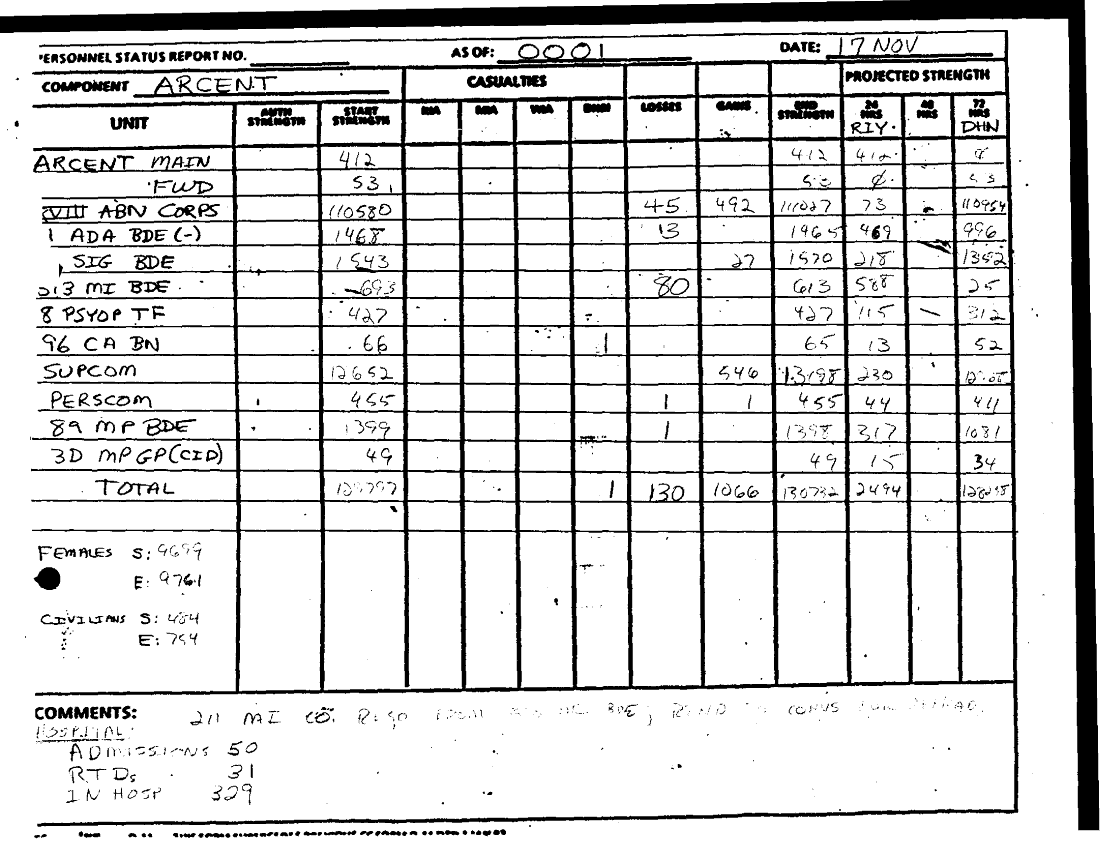 PERSONNEL STATUS REPORT NO. AS OF: 0001 DATE: 17 NOV
COMPONENT ARCENT CASUALTIES PROJECTED STRENGTH
UNIT AUTH STRENGTH START STRENGTH KIA MIA WIA DNBI LOSSES GAINS END STRENGTH 24 HRS RIY. 48 HRS 72 HRS DHN
ARCENT MAIN 412 412 412 0
FWD 53 53 Ø
XVIII ABN CORPS 110580 45 492 111027 73 110954
1 ADA BDE (-) 1468 13 1465 469 996
SIG BDE 1543 27 1570 218 1352
513 MI BDE 693 80 613 588 25
8 PSYOP TF 427 427 115 312
96 CA BN 66 1 65 13 52
SUPCOM 12652 546 13198 230
PERSCOM 455 1 1 455 44 411
89 MP BDE 1399 1 1398 317 1081
3D MP GP (CID) 49 49 15 34
TOTAL 1 130 1066 130732 2494
FEMALES S: 9699
E: 9761
CIVILIANS S: 484
E: 794
COMMENTS: 211 MI CO. BDE; CONUS
HOSPITAL:
ADMISSIONS 50
RTDs 31
IN HOSP 329